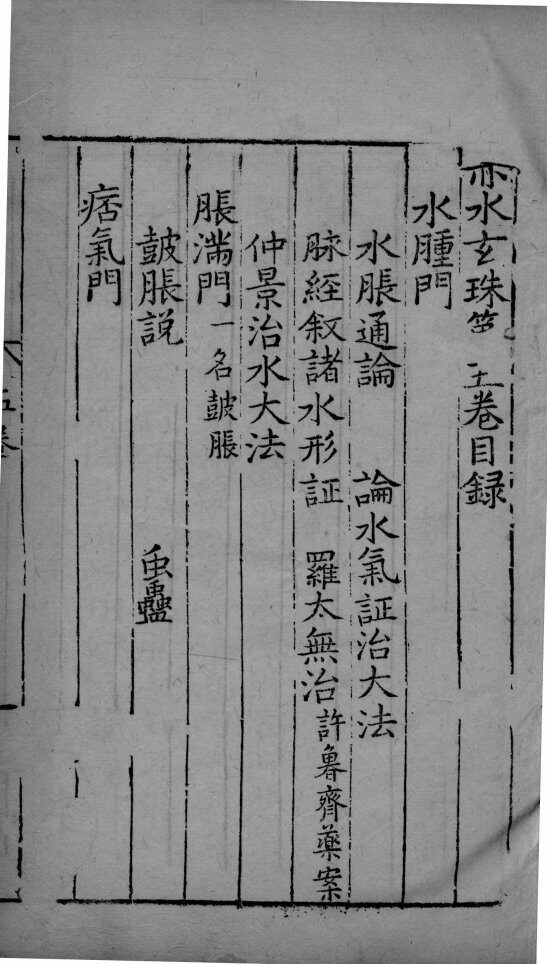 亦水玄珠第五卷目録
水腫門
水脹通論 論水氣証治大法
脉經叙諸水形証 羅太無治許魯齊藥案
仲景治水大法
脹滿門一名皷脹
皷脹説 虫蠱
痞氣門
五卷